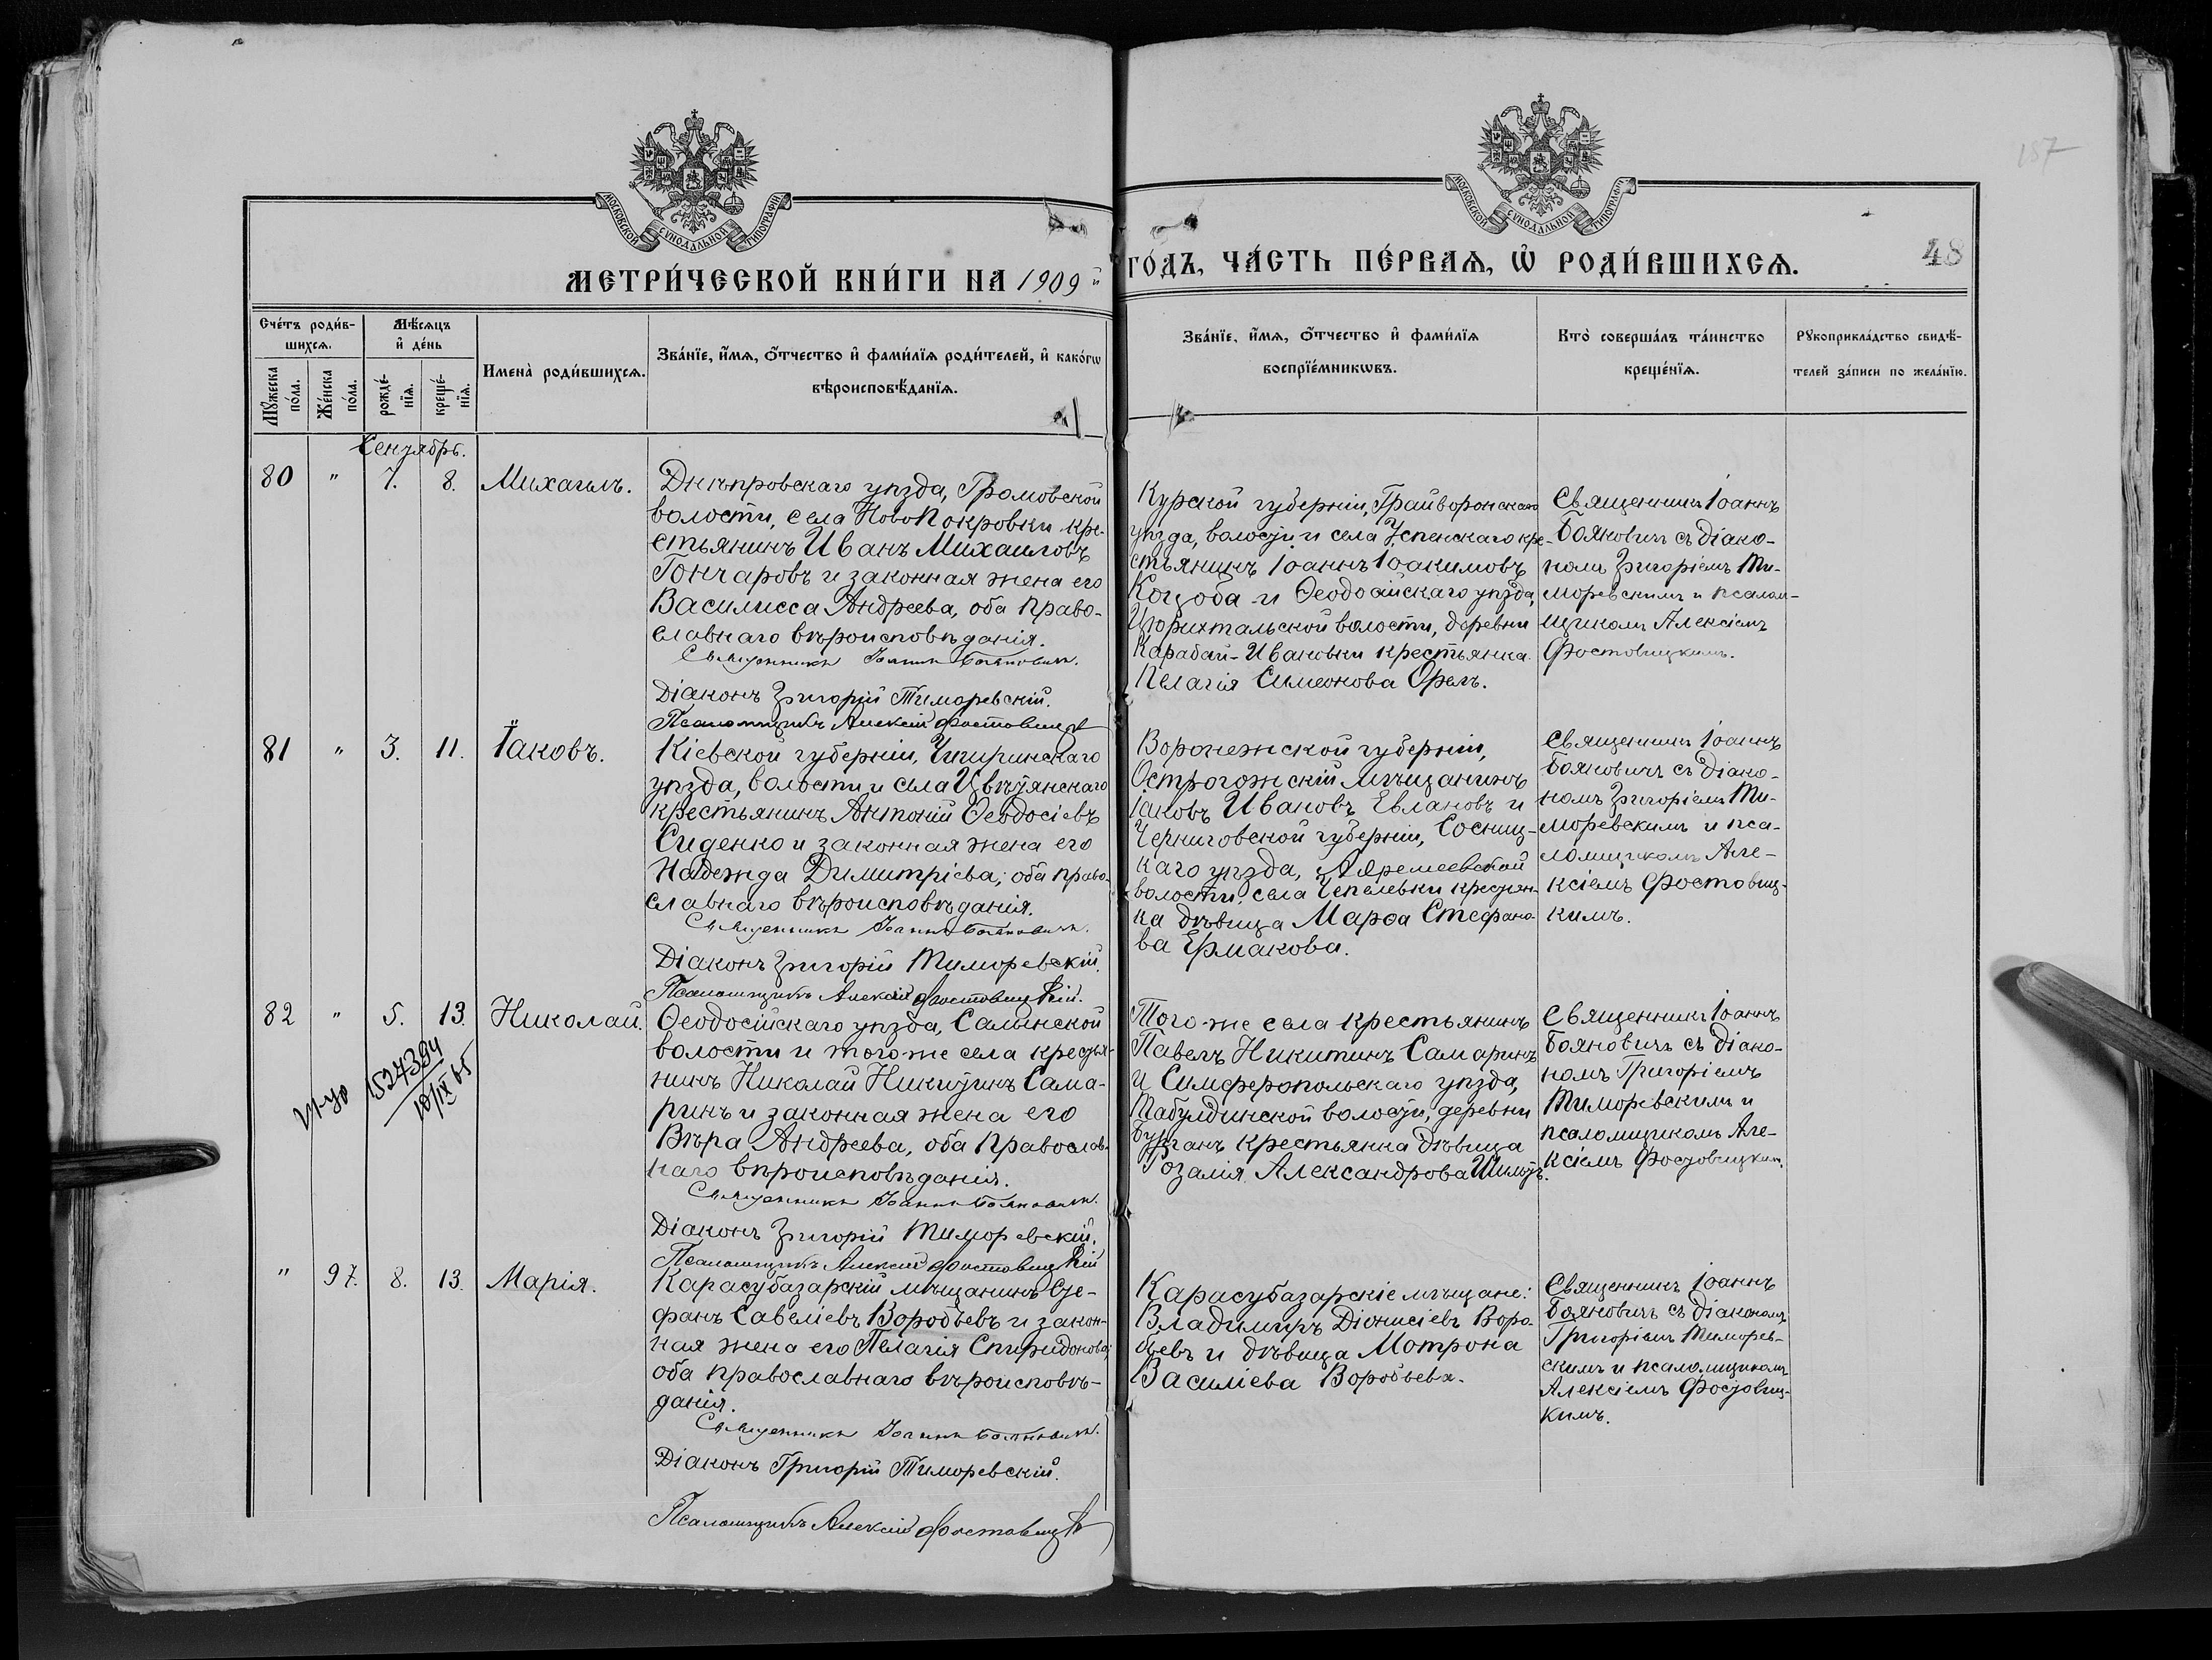 187
МОСКОВСКОЙ СѴНОДАЛЬНОЙ ТИПОГРАФІИ
МОСКОВСКОЙ СѴНОДАЛЬНОЙ ТИПОГРАФІИ
МЕТРИ́ЧЕСКОЙ КНИ́ГИ НА 1909 й ГО́ДЪ, ЧА́СТЬ ПЕ́РВАѦ, Ѡ҆ РОДИ́ВШИХСѦ.
48
Сче́тъ роди́в-
шихсѧ.
Мѣ́сѧцъ
и҆ де́нь
Мꙋ́жеска по́ла.
Же́нска по́ла.
рожде́-
нїѧ.
креще́-
нїѧ.
Имена̀ роди́вшихсѧ.
Зва́нїе, и҆́мѧ, ѻ҆́тчество и҆ фами́лїѧ роди́телей, и҆ како́гѡ
вѣроисповѣ́данїѧ.
Зва́нїе, и҆́мѧ, ѻ҆́тчество и҆ фами́лїѧ
воспрїе́мникѡвъ.
Кто̀ соверша́лъ та́инство
креще́нїѧ.
Рꙋкоприкла́дство свидѣ́-
телей за́писи по жела́нїю.
Сентябрь.
80 " 7. 8. Михаилъ.
Днѣпровскаго уѣзда, Громовской
волости, села НовоПокровки кре-
стьянинъ Иванъ Михаиловъ
Гончаровъ и законная жена его
Василисса Андреева, оба право-
славнаго вѣроисповѣданія.
Священникъ Іоаннъ Бояновичъ.
Діаконъ Григорій Тиморевскій.
Псаломщикъ Алексій Фостовицкій
Курской губерніи, Грайворонскаго
уѣзда, волости и села Успенскаго кре-
стьянинъ Іоаннъ Іоакимовъ
Коцоба и Ѳеодосійскаго уѣзда,
Цюрихтальской волости, деревни
Карабай-Ивановки крестьянка
Пелагія Симеонова Орелъ.
Священникъ Іоаннъ
Бояновичъ съ діако-
номъ Григоріемъ Ти-
моревскимъ и псалом-
щикомъ Алексіемъ
Фостовицкимъ.
81 " 3. 11. Іаковъ.
Кіевской губерніи, Чигиринскаго
уѣзда, волости и села Цвѣтянскаго
крестьянинъ Антоній Ѳеодосіевъ
Сиденко и законная жена его
Надежда Димитріева; оба право-
славнаго вѣроисповѣданія.
Священникъ Іоаннъ Бояновичъ.
Діаконъ Григорій Тиморевскій.
Псаломщикъ Алексій Фостовицкій.
Воронежской губерніи,
Острогожскій мѣщанинъ
Іаковъ Ивановъ Евлановъ и
Черниговской губерніи, Сосниц-
каго уѣзда,
волости, села Чепелевки крестьян-
ка дѣвица Марѳа Стефано-
ва Ермакова.
Священникъ Іоаннъ
Бояновичъ съ діако-
номъ Григоріемъ Ти-
моревскимъ и пса-
ломщикомъ Але-
ксіемъ Фостовиц-
кимъ.
82 " 5. 13. Николай.
1524394
10/IX 65
Ѳеодосійскаго уѣзда, Салынской
волости и того же села крестья-
нинъ Николай Никитинъ Сама-
ринъ и законная жена его
Вѣра Андреева, оба православ-
наго вѣроисповѣданія.
Священникъ Іоаннъ Бояновичъ.
Діаконъ Григорій Тиморевскій.
Псаломщикъ Алексій Фостовицкій
Того-же села крестьянинъ
Павелъ Никитинъ Самаринъ
и Симферопольскаго уѣзда,
Табулдинской волости, деревни
крестьянка дѣвица
Розалія Александрова
Священникъ Іоаннъ
Бояновичъ съ діако-
номъ Григоріемъ
Тиморевскимъ и
псаломщикомъ Але-
ксіемъ Фостовицким.
" 97. 8. 13. Марія.
Карасубазарскій мѣщанинъ Сте-
фанъ Савеліевъ Воробьевъ и закон-
ная жена его Пелагія Спиридонова;
оба православнаго вѣроисповѣ-
данія.
Священникъ Іоаннъ Бояновичъ.
Діаконъ Григорій Тиморевскій.
Псаломщикъ Алексій Фостовицкій
Карасубазарскіе мѣщане:
Владимиръ Діонисіевъ Воро-
бьевъ и дѣвица Мотрона
Василіева Воробьева.
Священникъ Іоаннъ
Бояновичъ съ діакономъ
Григоріемъ Тиморев-
скимъ и псаломщикомъ
Алексіемъ Фостовиц-
кимъ.